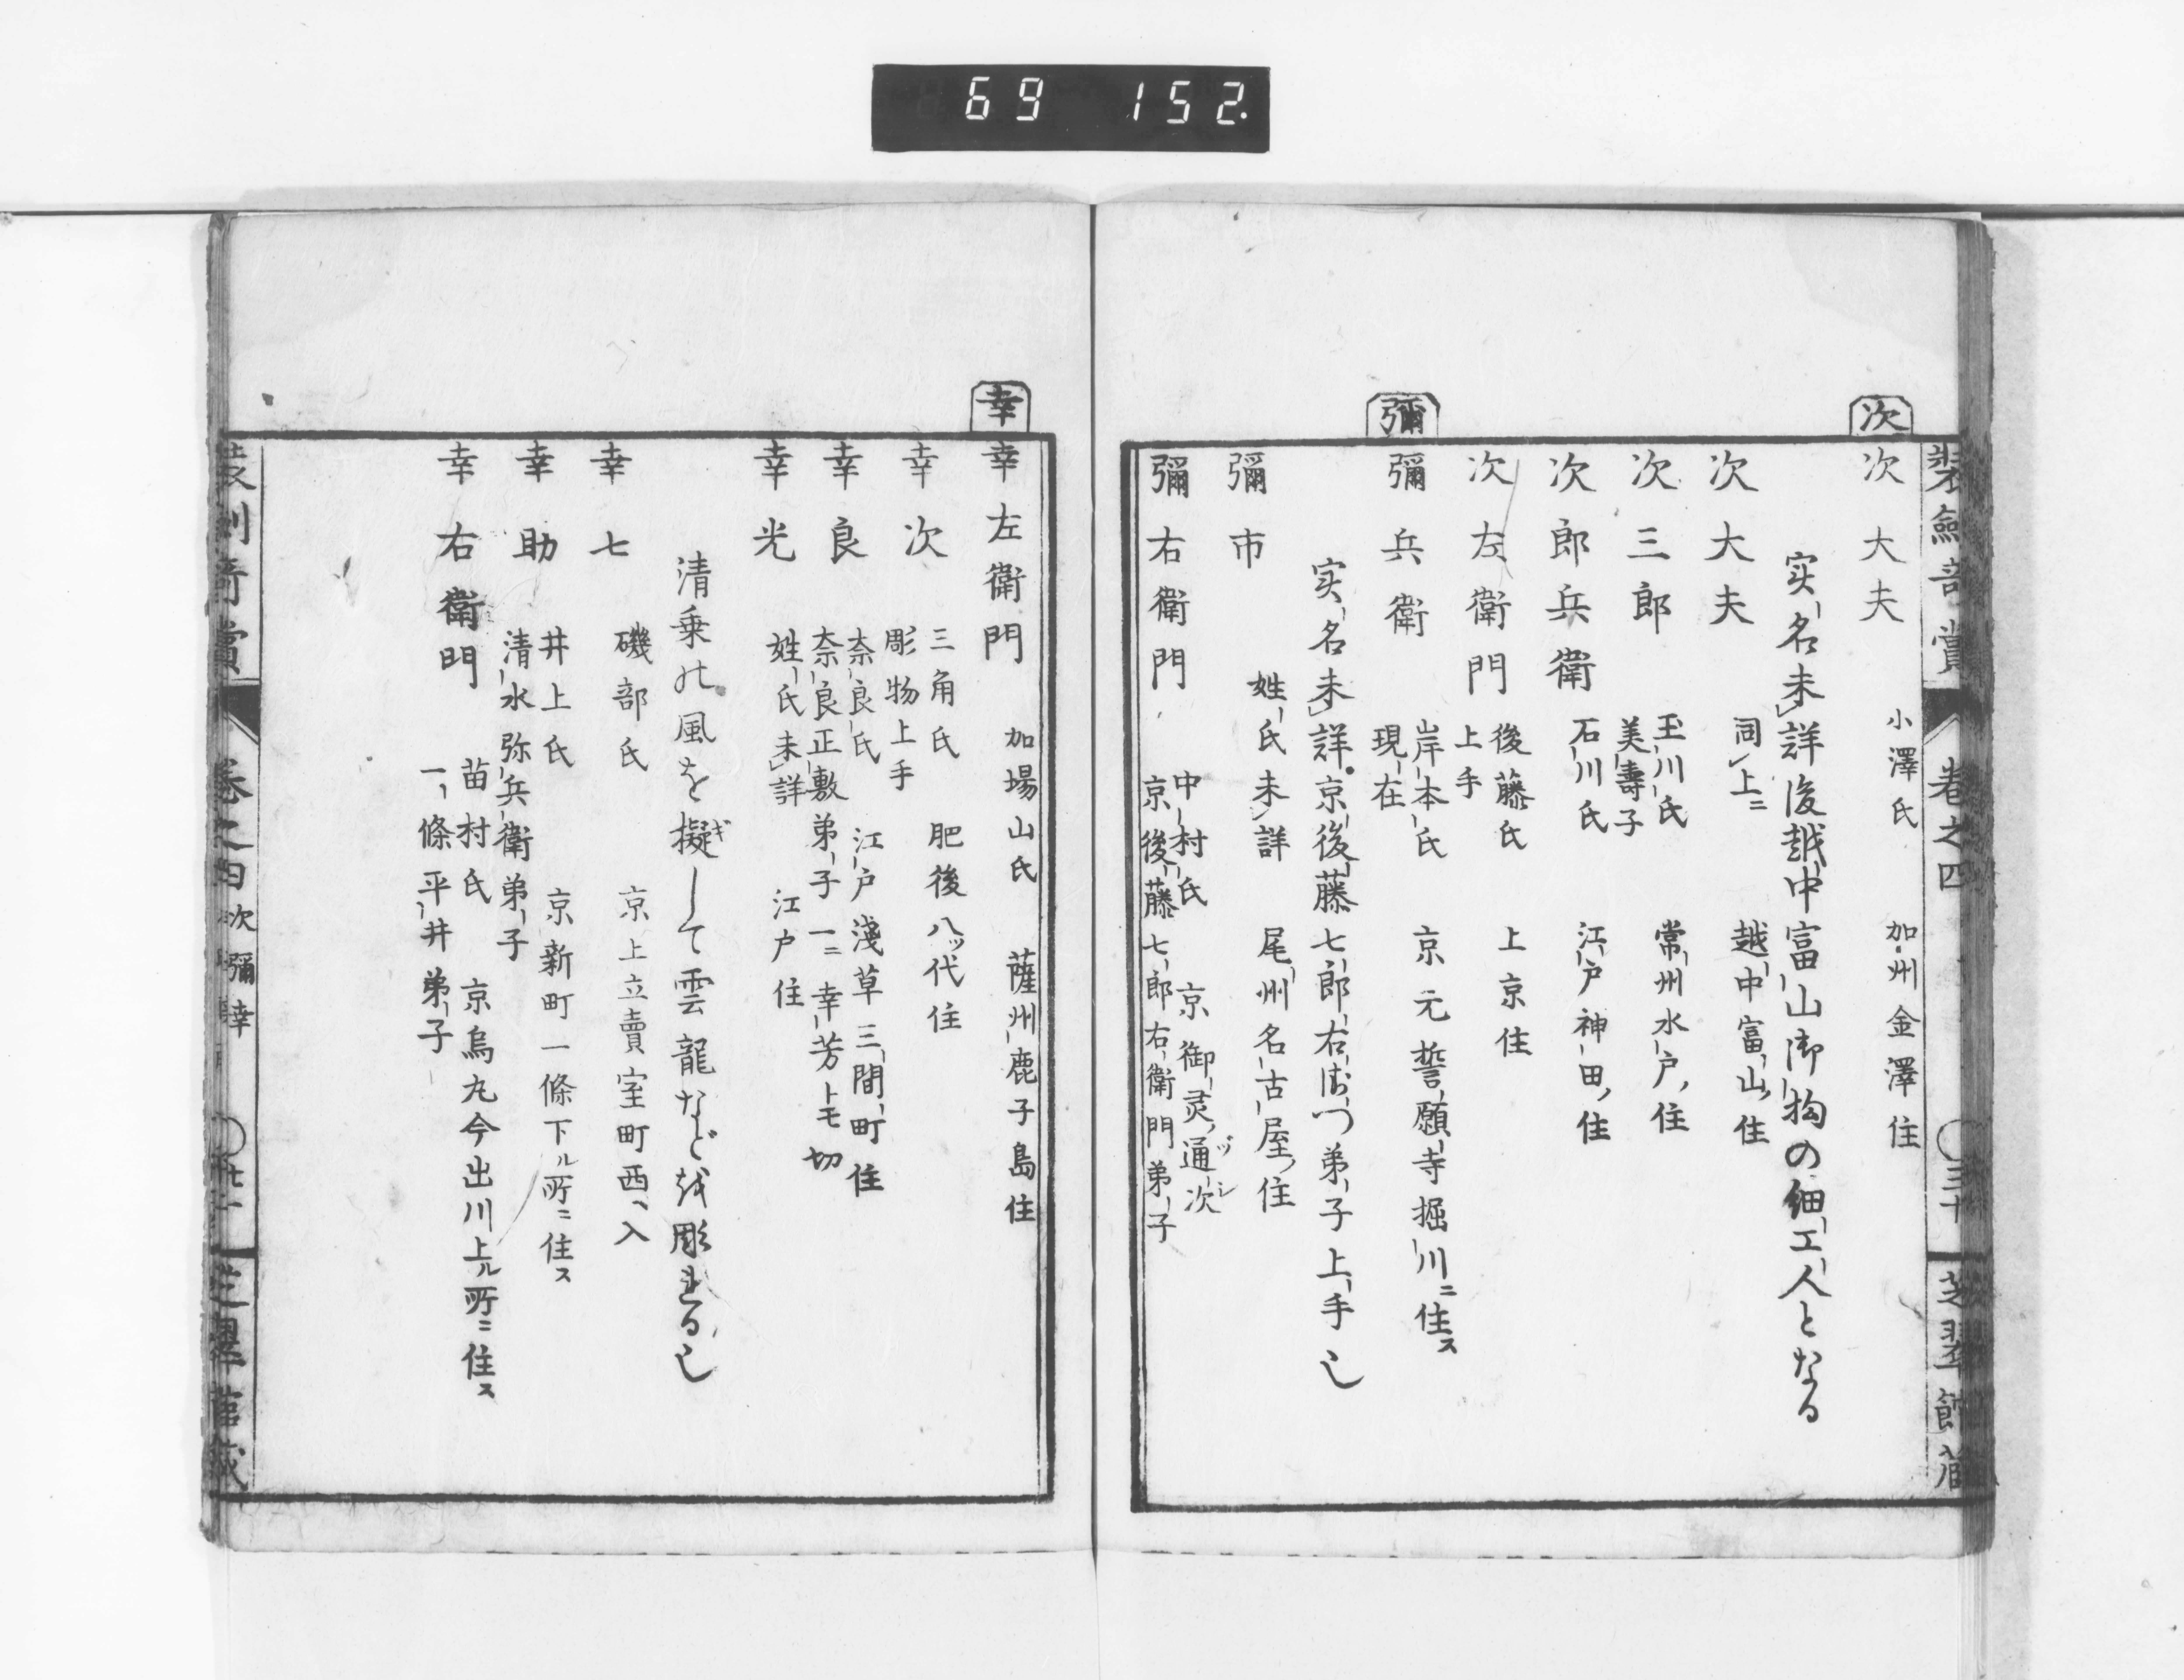 69 152.
裝劒竒賞
巻之四
三十
芝翠館藏
次
次大夫 小澤氏 加州金澤住
实名未詳後越中富山御抱の細工人となる
次大夫 同上ニ 越中富山住
次三郎 玉川氏 常州水戸住
美壽子
次郎兵衛 石川氏 江戸神田住
次左衛門 後藤氏 上京住
上手
彌
彌兵衛 岸本氏 京元誓願寺堀川ニ住ス
現在
实名未詳京後藤七郎右衛門弟子上手也
彌市 姓氏未詳 尾州名古屋住
彌右衛門 中村氏 京御灵通ヅシ次
京後藤七郎右衛門弟子
幸
幸左衛門 加場山氏 薩州鹿子島住
幸次 三角氏 肥後八ッ代住
彫物上手
幸良 奈良氏 江戸淺草三間町住
奈良正敷弟子一ニ幸芳トモ切
幸光 姓氏未詳 江戸住
清乗の風を擬ギして雲龍などを彫れる也
幸七 磯部氏 京上立賣室町西入
幸助 井上氏 京新町一條下ル所ニ住ス
清水弥兵衛弟子
幸右衛門 苗村氏 京烏丸今出川上ル所ニ住ス
一條平井弟子
裝劒竒賞
巻之四
次彌幸
芝翠館藏